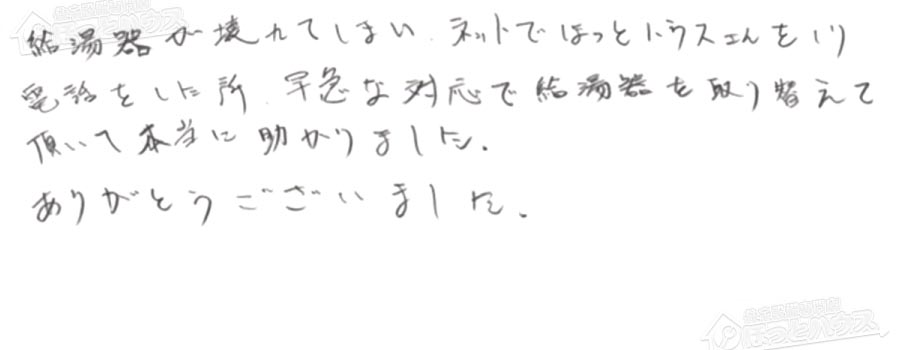 給湯器が壊れてしまい、ネットでほっとハウスさんを知り
電話をした所、早急な対応で給湯器を取り替えて
頂いて本当に助かりました。
ありがとうございました。
ほっとハウス
ほっとハウス